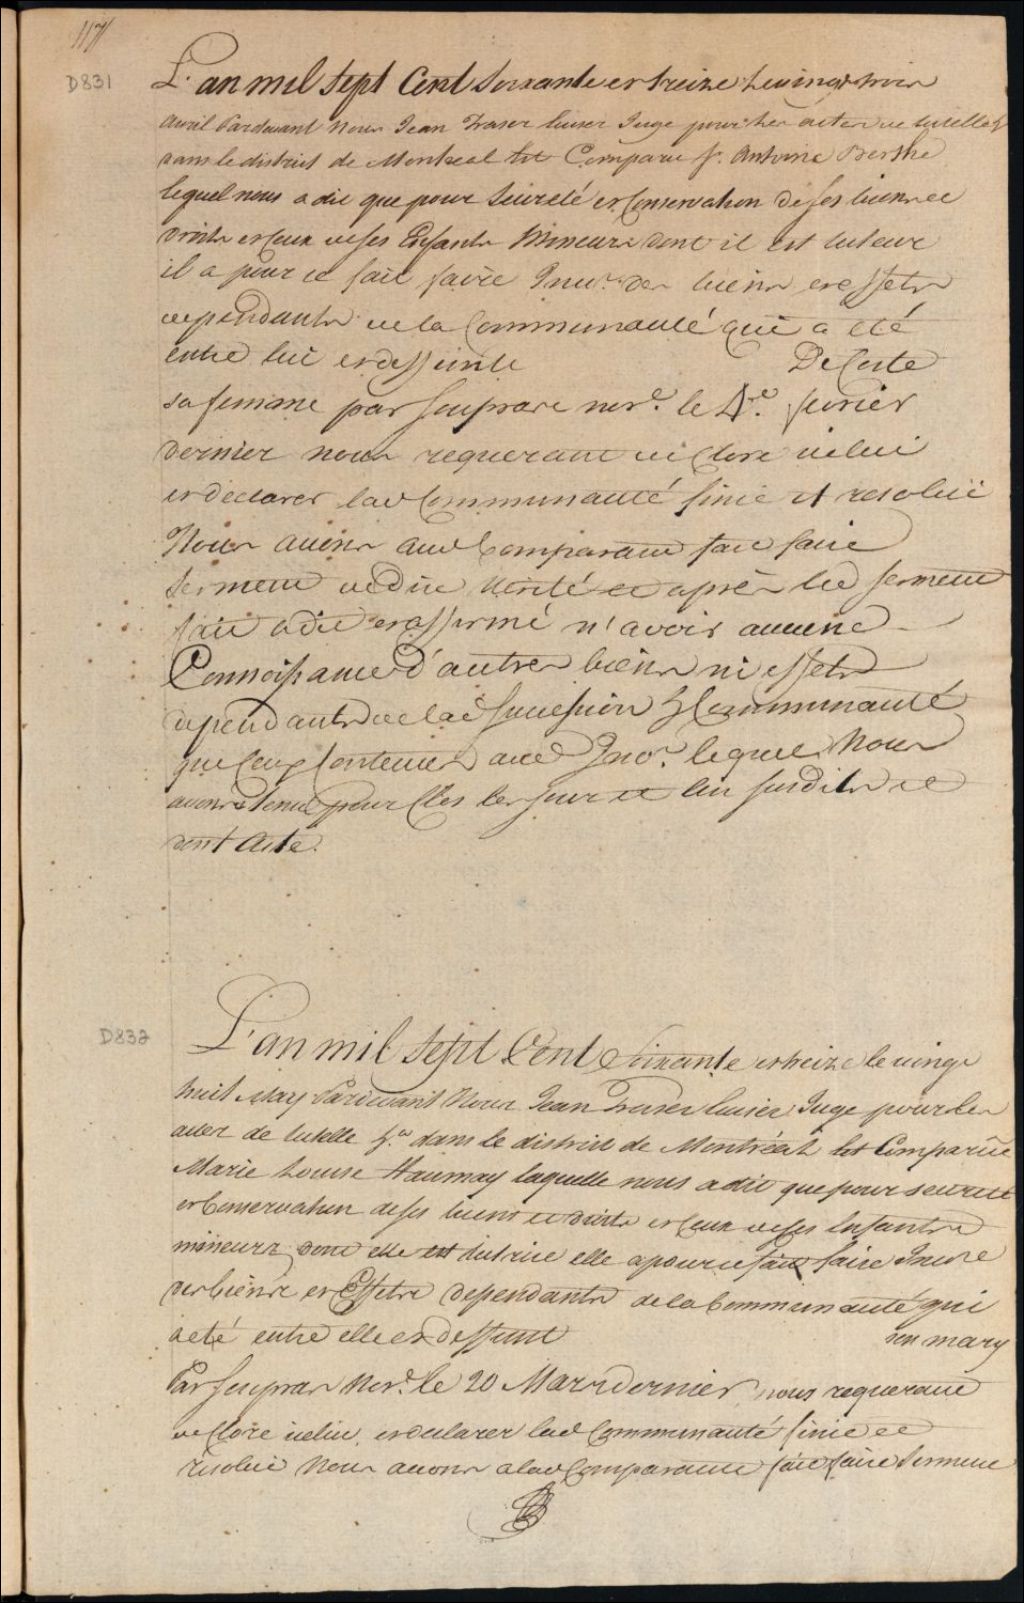 117
D831
L'an mil sept Cent Soixante et treize le vingt trois
avril Pardevant nous Jean Fraser Ecuier Juge pour les actes de tutelle &c
dans le district de Montreal Est Comparu Sr. Antoine Berthe
lequel nous a dit que pour Seureté et Conservation de ses biens et
droits et ceux de ses Enfants Mineurs dont il est tuteur
il a pour ce fait faire Inv.re des biens et effets
dependants de la Communauté qui a été
entre lui et deffunte Deceste
sa femme par Souprare nore. le 4e. fevrier
dernier nous requerant de Clore icelui
et declarer lad Communauté finie et resolue
Nous avons aud Comparant fait faire
serment de dire Verité et après led serment
fait a dit et affirmé n'avoir aucune
Connoissance d'autres biens ni effets
dependants de lad Succession & Communauté
que ceux Contenus aud Inv.re lequel Nous
avons tenu pour Clos les jour et an susdits et
dont Acte.
D832
L'an mil Sept Cent Soixante et treize le vingt
huit May Pardevant Nous Jean Fraser Ecuier Juge pour les
actes de tutelle &ca dans le district de Montréal Est Comparüe
Marie Louise Haumay laquelle nous a dit que pour seureté
et Conservation de ses biens et droits et ceux de ses Enfants
mineurs dont elle est tutrice elle a pour ce fait faire Invre
des biens et Effets dependants de la Communauté qui
a eté entre elle et deffunt son mary
Par Souprar Nore. le 20 Mars dernier nous requerant
de Clore icelui et declarer lad Communauté finie et
resolue Nous avons a lad Comparante fait faire serment